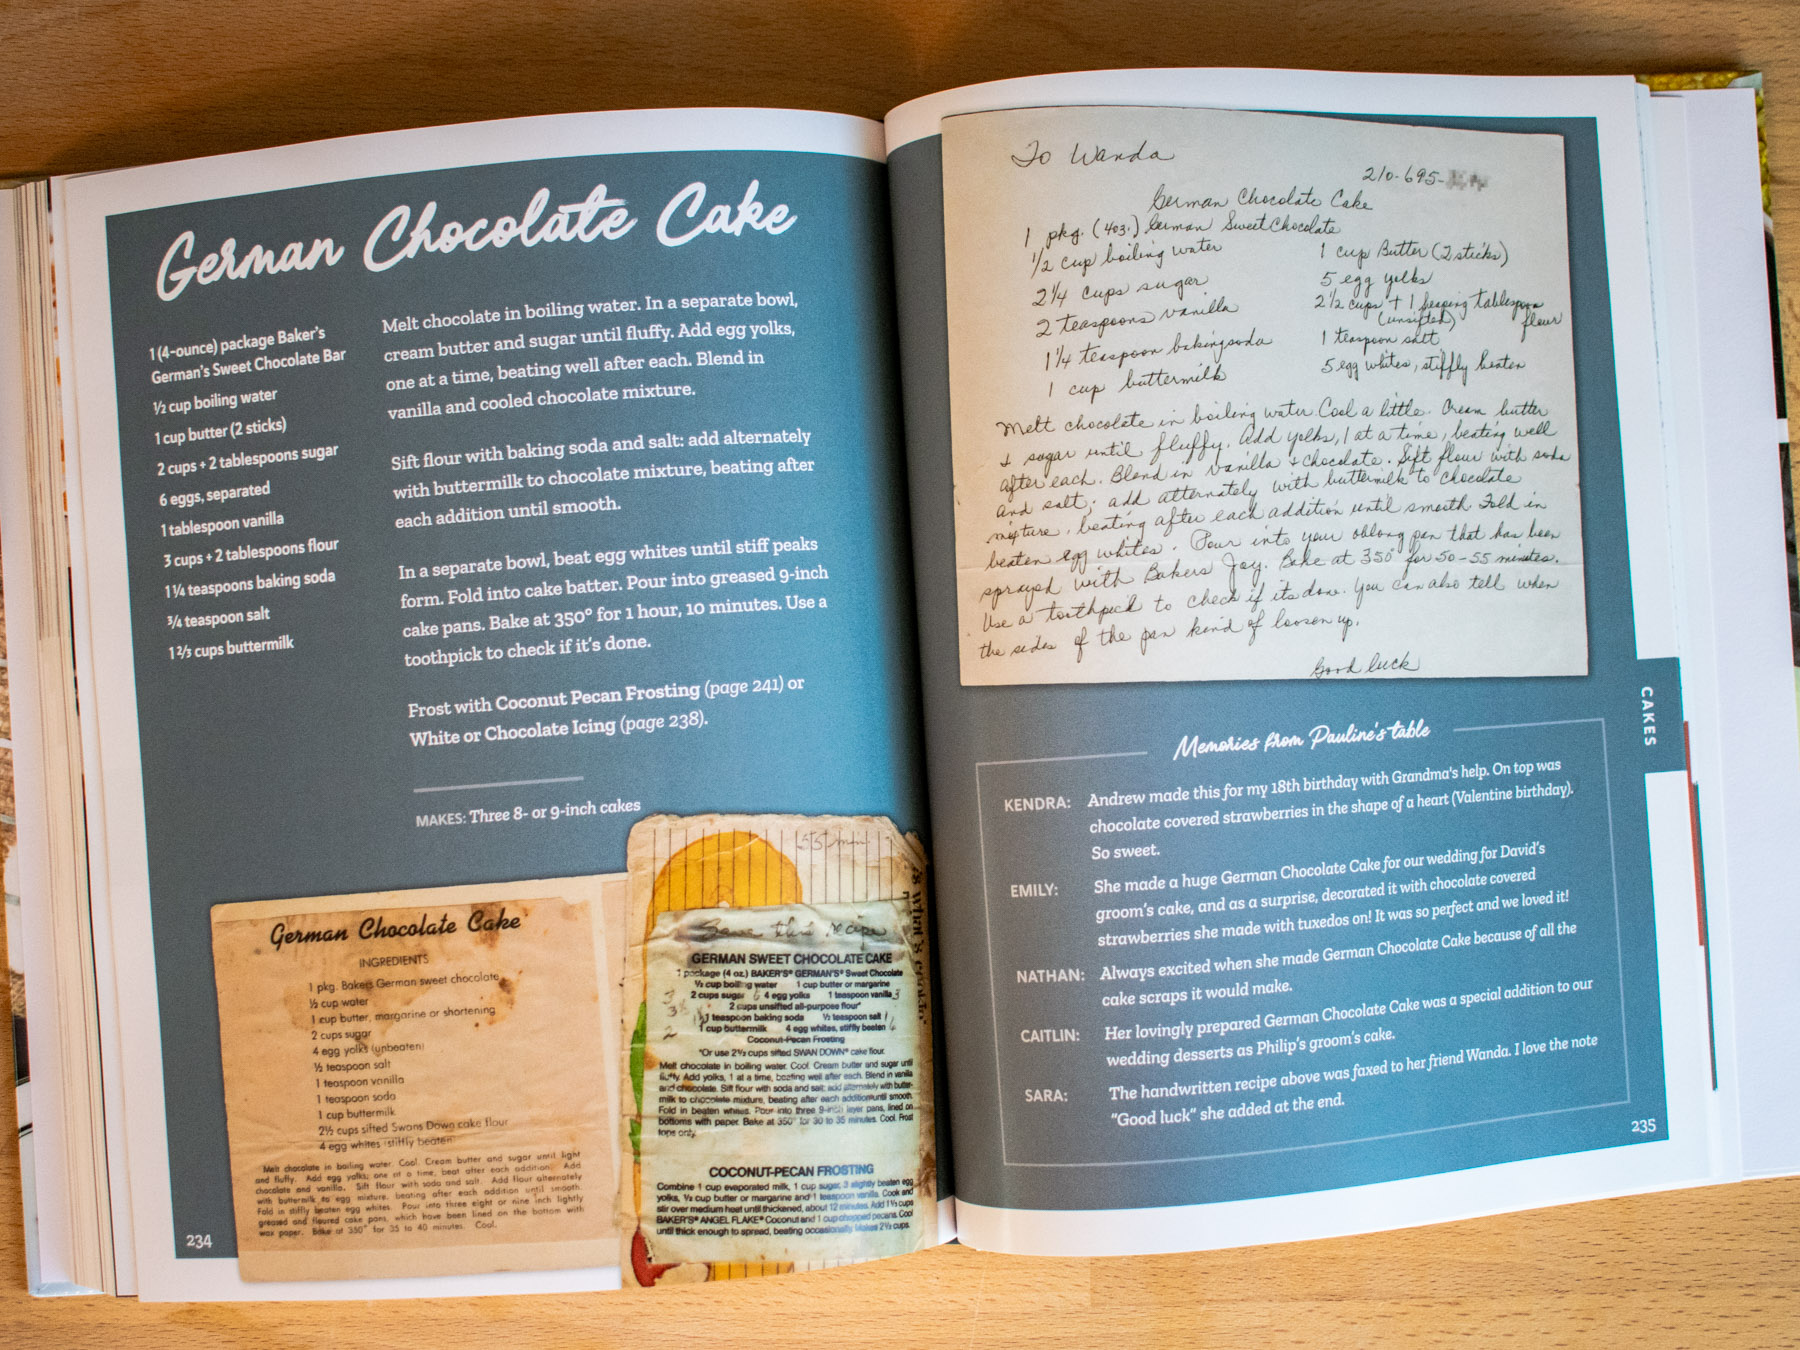 German Chocolate Cake
1 (4-ounce) package Baker's
German's Sweet Chocolate Bar
½ cup boiling water
1 cup butter (2 sticks)
2 cups + 2 tablespoons sugar
6 eggs, separated
1 tablespoon vanilla
3 cups + 2 tablespoons flour
1¼ teaspoons baking soda
¾ teaspoon salt
1⅔ cups buttermilk
Melt chocolate in boiling water. In a separate bowl,
cream butter and sugar until fluffy. Add egg yolks,
one at a time, beating well after each. Blend in
vanilla and cooled chocolate mixture.
Sift flour with baking soda and salt: add alternately
with buttermilk to chocolate mixture, beating after
each addition until smooth.
In a separate bowl, beat egg whites until stiff peaks
form. Fold into cake batter. Pour into greased 9-inch
cake pans. Bake at 350° for 1 hour, 10 minutes. Use a
toothpick to check if it's done.
Frost with Coconut Pecan Frosting (page 241) or
White or Chocolate Icing (page 238).
MAKES: Three 8- or 9-inch cakes
German Chocolate Cake
INGREDIENTS
1 pkg. Bakers German sweet chocolate
½ cup water
1 cup butter, margarine or shortening
2 cups sugar
4 egg yolks (unbeaten)
½ teaspoon salt
1 teaspoon vanilla
1 teaspoon soda
1 cup buttermilk
2½ cups sifted Swans Down cake flour
4 egg whites (stiffly beaten)
Melt chocolate in boiling water. Cool. Cream butter and sugar until light
and fluffy. Add egg yolks; one at a time, beat after each addition. Add
chocolate and vanilla. Sift flour with soda and salt. Add flour alternately
with buttermilk to egg mixture, beating after each addition until smooth.
Fold in stiffly beaten egg whites. Pour into three eight or nine inch lightly
greased and floured cake pans, which have been lined on the bottom with
wax paper. Bake at 350° for 35 to 40 minutes. Cool.
234
55 min
Save this recipe
GERMAN SWEET CHOCOLATE CAKE
1 package (4 oz.) BAKER'S® GERMAN'S® Sweet Chocolate
½ cup boiling water 1 cup butter or margarine
2 cups sugar 6 4 egg yolks 1 teaspoon vanilla 3
2 cups unsifted all-purpose flour*
1 teaspoon baking soda ½ teaspoon salt
1 cup buttermilk 4 egg whites, stiffly beaten
Coconut-Pecan Frosting
*Or use 2½ cups sifted SWAN DOWN® cake flour.
Melt chocolate in boiling water. Cool. Cream butter and sugar until
fluffy. Add yolks, 1 at a time, beating well after each. Blend in vanilla
and chocolate. Sift flour with soda and salt; add alternately with butter-
milk to chocolate mixture, beating after each addition until smooth.
Fold in beaten whites. Pour into three 9-inch layer pans, lined on
bottoms with paper. Bake at 350° for 30 to 35 minutes. Cool. Frost
tops only.
COCONUT-PECAN FROSTING
Combine 1 cup evaporated milk, 1 cup sugar, 3 slightly beaten egg
yolks, ½ cup butter or margarine and 1 teaspoon vanilla. Cook and
stir over medium heat until thickened, about 12 minutes. Add 1⅓ cups
BAKER'S® ANGEL FLAKE® Coconut and 1 cup chopped pecans. Cool
until thick enough to spread, beating occasionally. Makes 2½ cups.
To Wanda
210-695-
German Chocolate Cake
1 pkg. (4oz.) German Sweet Chocolate
½ cup boiling water 1 cup Butter (2 sticks)
2¼ cups sugar 5 egg yolks
2 teaspoons vanilla 2½ cups + 1 heaping tablespoon
(unsifted) flour
1¼ teaspoon baking soda 1 teaspoon salt
1 cup buttermilk 5 egg whites, stiffly beaten
Melt chocolate in boiling water. Cool a little. Cream butter
& sugar until fluffy. Add yolks, 1 at a time, beating well
after each. Blend in vanilla & chocolate. Sift flour with soda
and salt; add alternately with buttermilk to chocolate
mixture, beating after each addition until smooth. Fold in
beaten egg whites. Pour into your oblong pan that has been
sprayed with Bakers Joy. Bake at 350° for 50-55 minutes.
Use a toothpick to check if its done. You can also tell when
the sides of the pan kind of loosen up.
Good luck
CAKES
Memories from Pauline's table
KENDRA: Andrew made this for my 18th birthday with Grandma's help. On top was
chocolate covered strawberries in the shape of a heart (Valentine birthday).
So sweet.
EMILY: She made a huge German Chocolate Cake for our wedding for David's
groom's cake, and as a surprise, decorated it with chocolate covered
strawberries she made with tuxedos on! It was so perfect and we loved it!
NATHAN: Always excited when she made German Chocolate Cake because of all the
cake scraps it would make.
CAITLIN: Her lovingly prepared German Chocolate Cake was a special addition to our
wedding desserts as Philip's groom's cake.
SARA: The handwritten recipe above was faxed to her friend Wanda. I love the note
"Good luck" she added at the end.
235